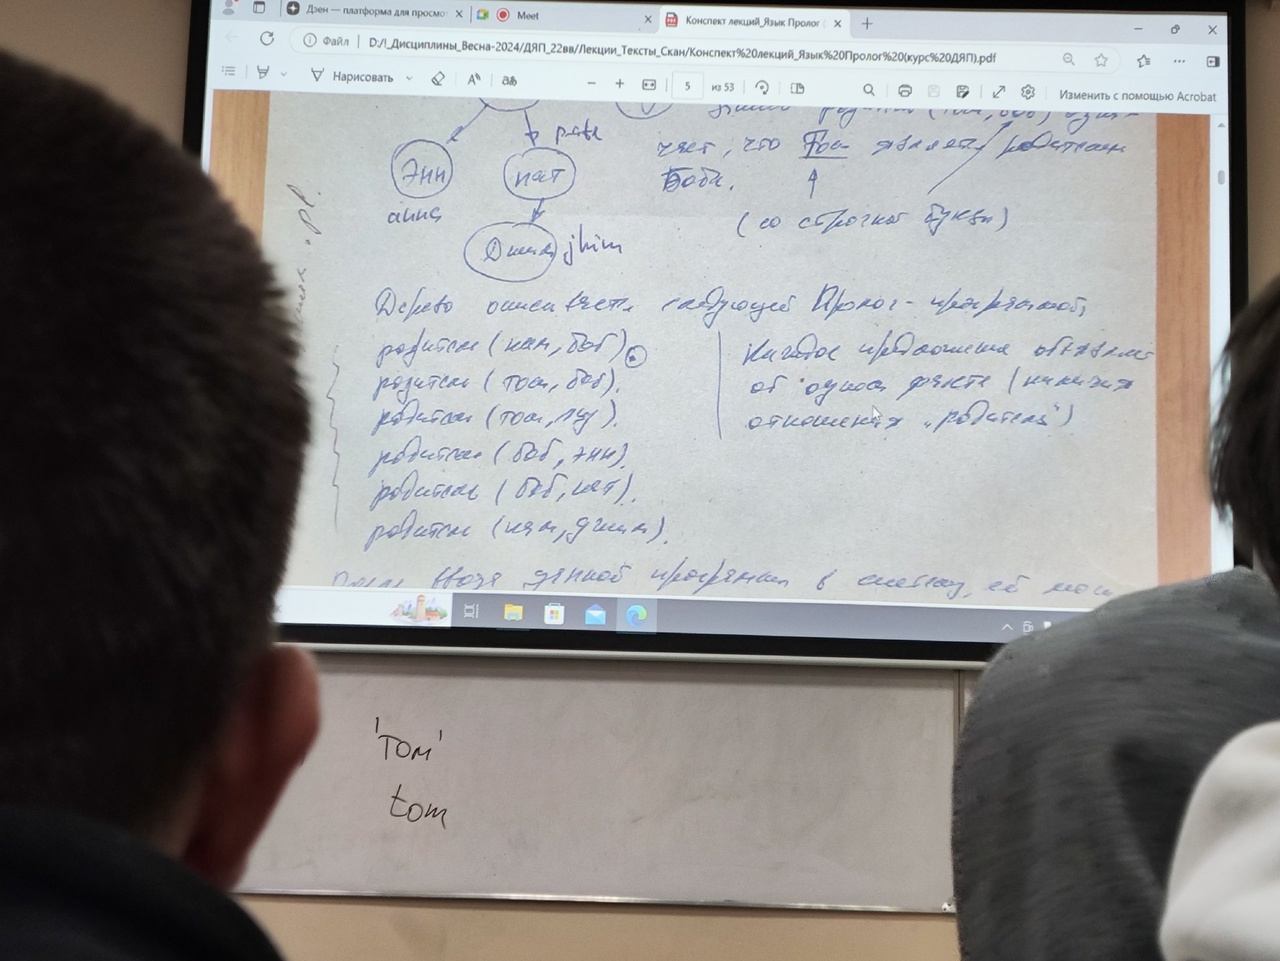 Дзен — платформа для просмо
Meet
Конспект лекций_Язык Пролог
Файл D:/I_Дисциплины_Весна-2024/ДЯП_22вв/Лекции_Тексты_Скан/Конспект%20лекций_Язык%20Пролог%20(курс%20ДЯП).pdf
Нарисовать
5 из 53
Изменить с помощью Acrobat
чает, что Том является родителем
Боба.
(со строчной буквы)
Энн
анна
пат
Джим jhim
Дерево описывается следующей Пролог-программой:
родитель (пам, боб).
родитель (том, боб).
родитель (том, лиз).
родитель (боб, энн).
родитель (боб, пат).
родитель (пат, джим).
Каждое предложение объявляет
об одном факте (наличия
отношения „родитель")
После ввода данной программы в систему, ей
'Том'
tom